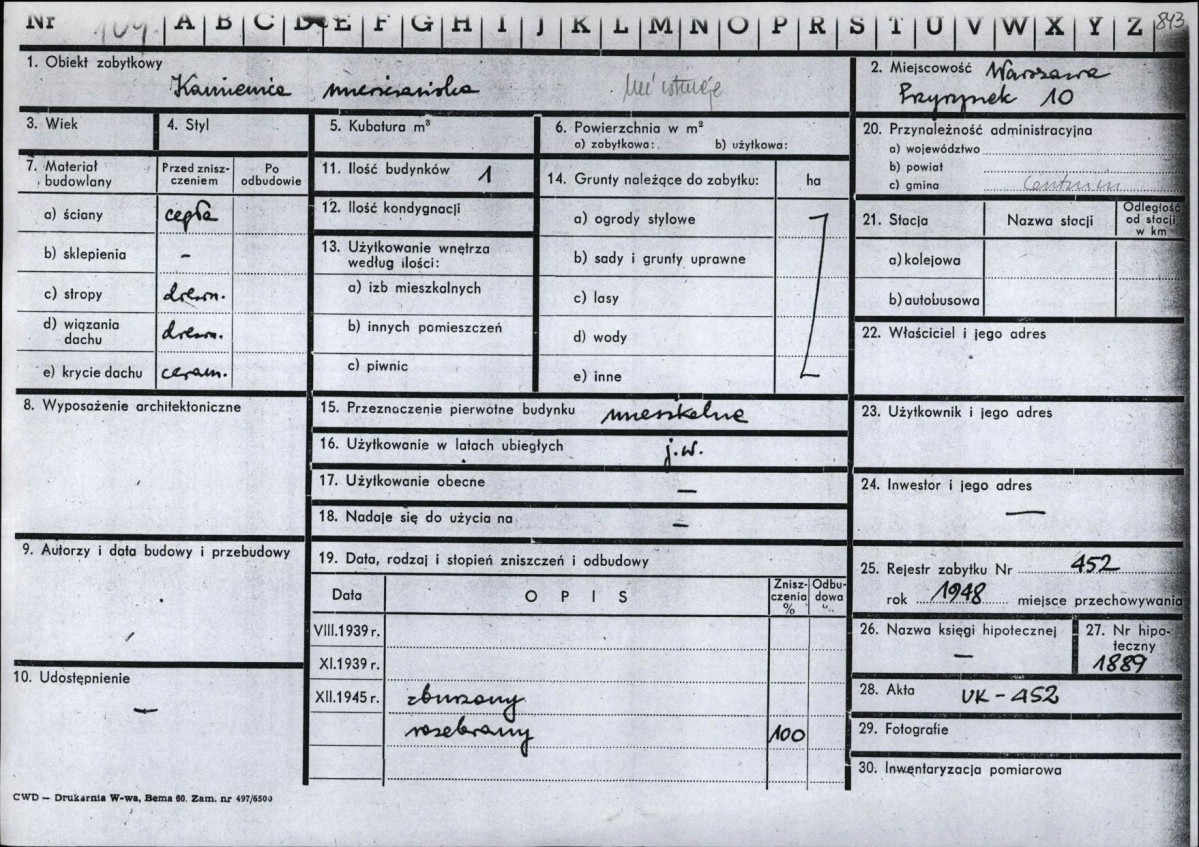 Nr 104. A B C D E F G H I J K L M N O P R S T U V W X Y Z 843
1. Obiekt zabytkowy
Kamienica mieszczańska
nie istnieje
2. Miejscowość Warszawa
Przyrynek 10
3. Wiek
4. Styl
5. Kubatura m³
6. Powierzchnia w m²
a) zabytkowa: b) użytkowa:
20. Przynależność administracyjna
a) województwo
b) powiat
c) gmina
7. Materiał budowlany
Przed znisz-
czeniem
Po
odbudowie
a) ściany cegła
b) sklepienia -
c) stropy drewn.
d) wiązania
dachu drewn.
e) krycie dachu ceram.
11. Ilość budynków 1
12. Ilość kondygnacji
13. Użytkowanie wnętrza
według ilości:
a) izb mieszkalnych
b) innych pomieszczeń
c) piwnic
14. Grunty należące do zabytku: ha
a) ogrody stylowe
b) sady i grunty uprawne
c) lasy
d) wody
e) inne
21. Stacja
Nazwa stacji
Odległość
od stacji
w km
a) kolejowa
b) autobusowa
22. Właściciel i jego adres
8. Wyposażenie architektoniczne
15. Przeznoczenie pierwotne budynku mieszkalne
16. Użytkowanie w latach ubiegłych j.w.
17. Użytkowanie obecne —
18. Nadaje się do użycia na —
23. Użytkownik i jego adres
24. Inwestor i jego adres
—
9. Autorzy i data budowy i przebudowy
10. Udostępnienie
—
19. Data, rodzaj i stopień zniszczeń i odbudowy
Data
OPIS
Znisz-
czenia
%
Odbu-
dowa
VIII.1939 r.
XI.1939 r.
XII.1945 r. zburzony
rozebrany 100
25. Rejestr zabytku Nr 452
rok 1948 miejsce przechowywania
26. Nazwa księgi hipotecznej
—
27. Nr hipo-
teczny
1889
28. Akta UK-452
29. Fotografie
30. Inwentaryzacja pomiarowa
CWD — Drukarnia W-wa, Bema 60. Zam. nr 497/6500